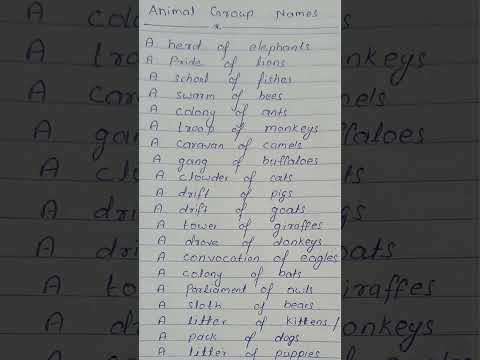 Animal Group Names
A herd of elephants
A Pride of lions
A school of fishes
A swarm of bees
A colony of ants
A troop of monkeys
A caravan of camels
A gang of buffaloes
A clowder of cats
A drift of pigs
A drift of goats
A tower of giraffes
A drove of donkeys
A convocation of eagles
A colony of bats
A parliament of owls
A sloth of bears
A litter of kittens/
A pack of dogs
A litter of puppies